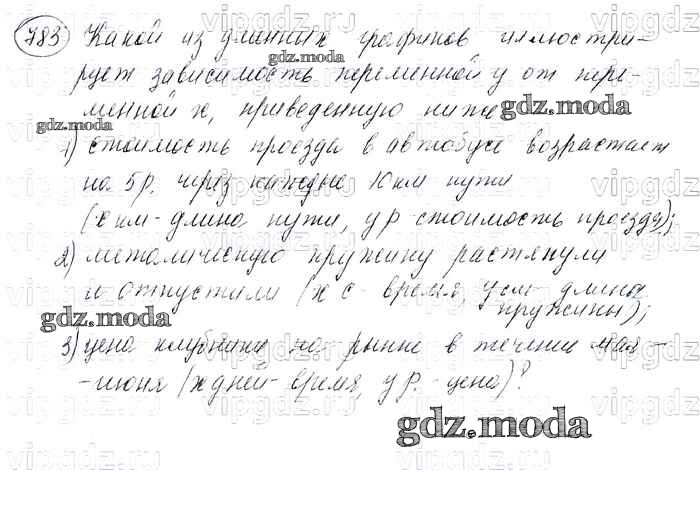 783 Какой из данных графиков иллюстри-
рует зависимость переменной y от пере-
менной x, приведенную ниже
1) стоимость проезда в автобусе возрастает
на 5 р. через каждые 10 км пути
(x км - длина пути, y р - стоимость проезда);
2) металическую пружину растянули
и отпустили (x с - время, y см - длина
пружины);
3) цена клубники на рынке в течении мая -
- июня (x дней - время, y р. - цена)?
gdz.moda
gdz.moda
gdz.moda
gdz.moda
gdz.moda
vipgdz.ru